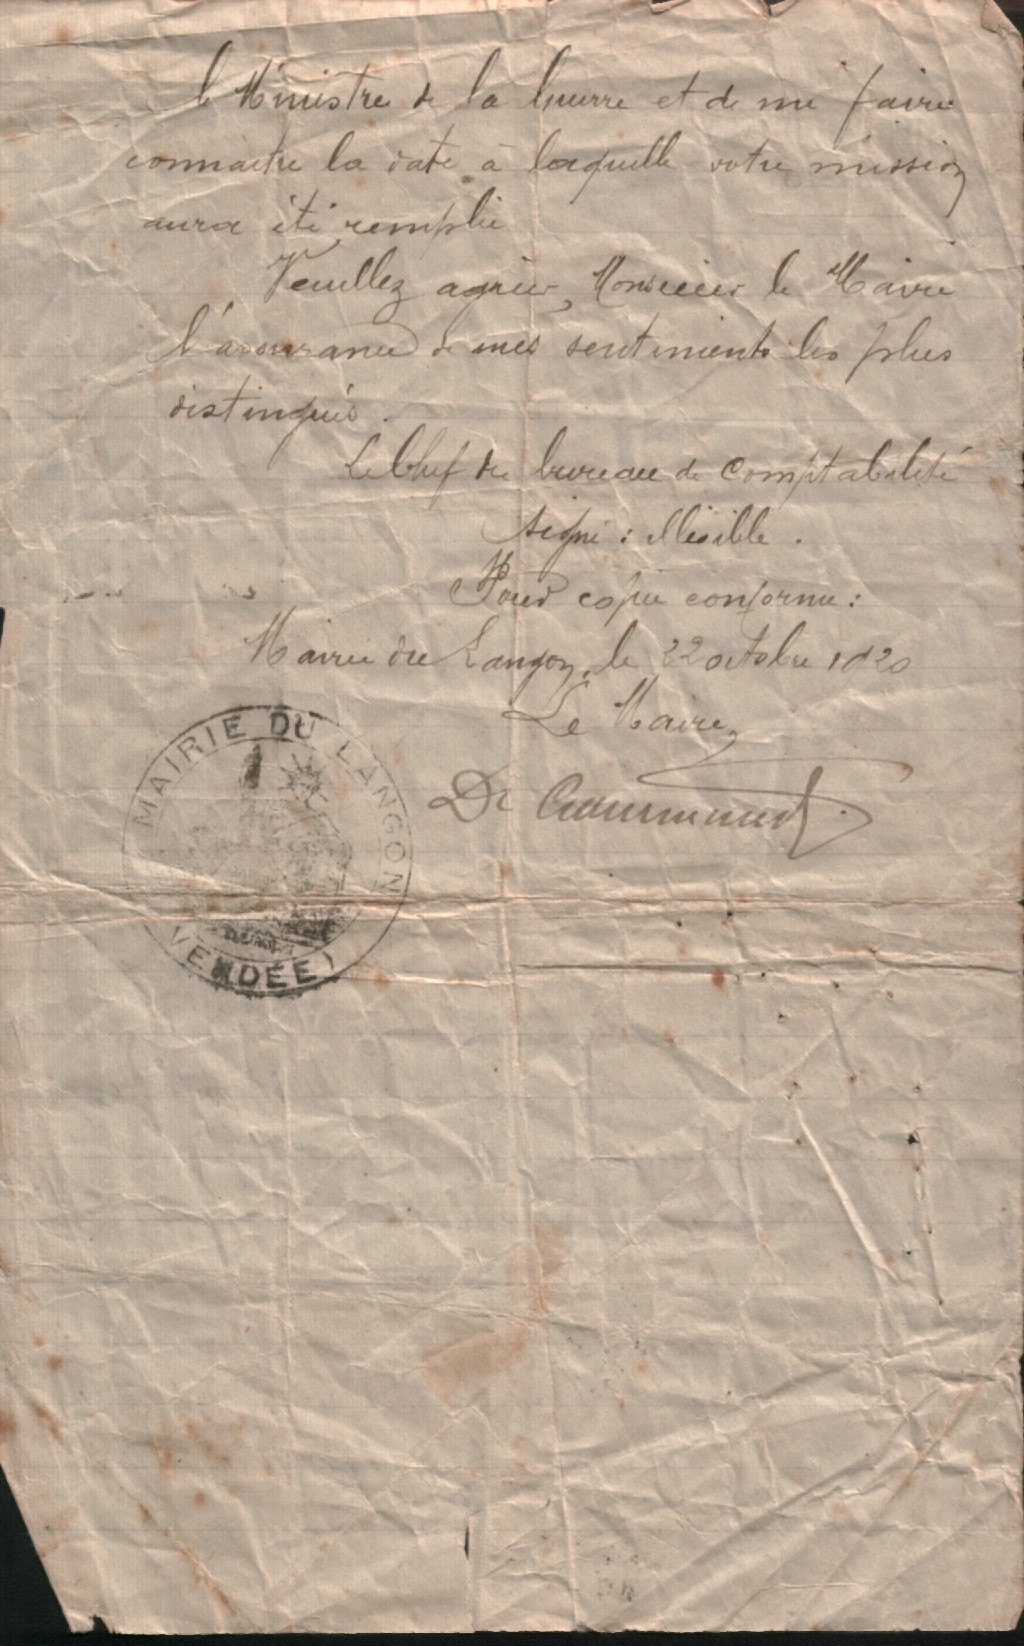 le Ministre de la Guerre et de me faire
connaître la date à laquelle votre mission
aura été remplie
Veuillez agréer, Monsieur le Maire
l'assurance de mes sentiments les plus
distingués.
Le Chef du bureau de Comptabilité
signé : illisible.
Pour copie conforme :
Mairie du Langon, le 22 octobre 1920
Le Maire,
Dr
MAIRIE DU LANGON
(VENDÉE)